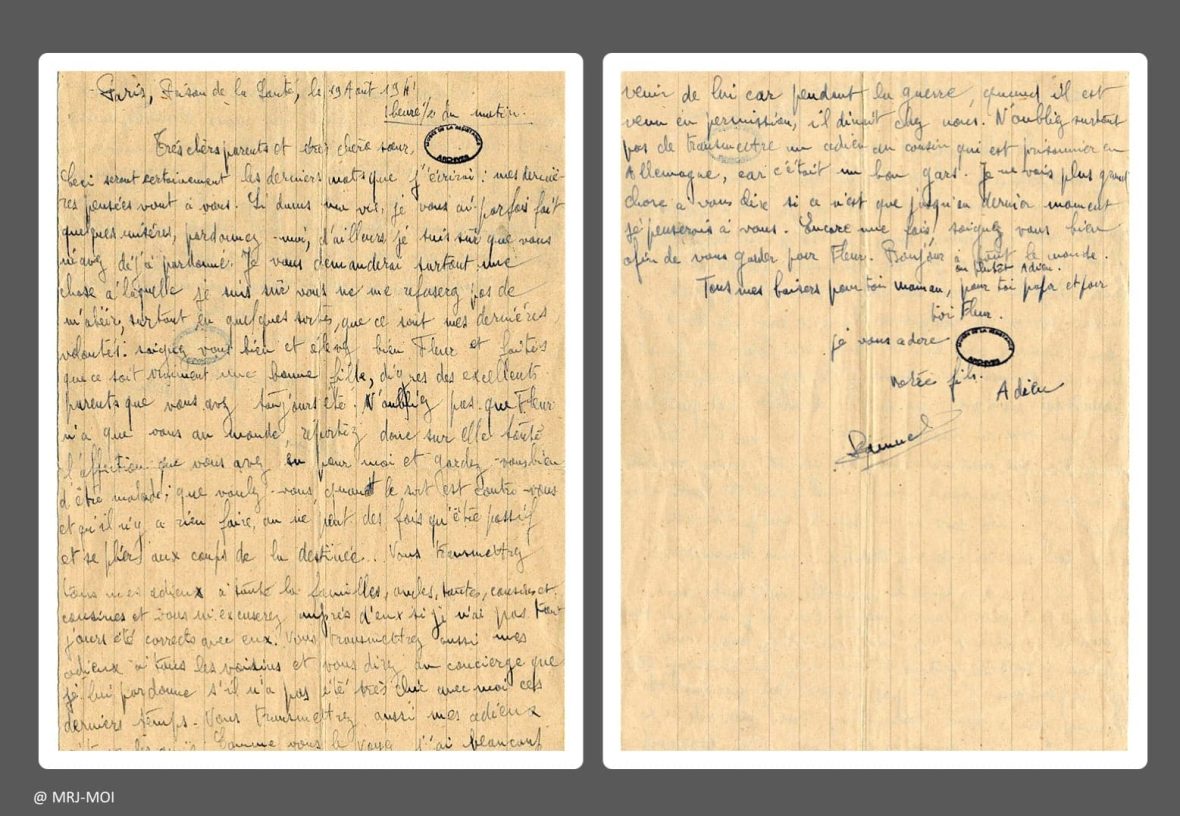 Paris, Prison de la Santé, le 19 Août 194
1 heure 1/2 du matin.
Très chers parents et très chère sœur,
MUSÉE DE LA RÉSISTANCE
ARCHIVES
Ceci seront certainement les derniers mots que j'écrirai : mes derniè-
res pensées vont à vous. Si durant ma vie, je vous ai parfois fait
quelques misères, pardonnez-moi, d'ailleurs je suis sûr que vous
m'avez déjà pardonné. Je vous demanderai surtout une
chose à laquelle je suis sûr vous ne me refuserez pas de
m'obéir, surtout en quelques sortes, que ce sont mes dernières
volontés : soignez vous bien et élevez bien Fleur et faites
que ce soit vraiment une bonne fille, dignes des excellents
parents que vous avez toujours été. N'oubliez pas que Fleur
n'a que vous au monde, reportez donc sur elle toute
l'affection que vous avez eu pour moi et gardez-vous bien
d'être malade ; que voulez-vous quand le sort est contre vous
et qu'il n'y a rien faire, on ne peut des fois qu'être passif
et se plier aux coups de la destinée... Vous transmettrez
tous mes adieux à toute la familles, oncles, tantes, cousins et
cousines et vous m'excuserez auprès d'eux si je n'ai pas tou-
jours été corrects avec eux. Vous transmettrez aussi mes
adieux à tous les voisins et vous direz au concierge que
je lui pardonne s'il n'a pas été très chic avec moi ces
derniers temps. Vous transmettrez aussi mes adieux
Comme vous le voyez j'ai beaucoup
venir de lui car pendant la guerre, quand il est
venu en permission, il dinait chez nous. N'oubliez surtout
pas de transmettre un adieu au cousin qui est prisonnier en
Allemagne, car c'était un bon gars. Je ne vois plus grand
chose à vous dire si ce n'est que jusqu'au dernier moment
je penserais à vous. Encore une fois, soignez vous bien
afin de vous garder pour Fleur. Bonjour à tout le monde.
ou plutôt Adieu.
Tous mes baisers pour toi maman, pour toi papa et pour
toi Fleur.
je vous adore
MUSÉE DE LA RÉSISTANCE
ARCHIVES
votre fils.
Adieu
Samuel
@ MRJ-MOI